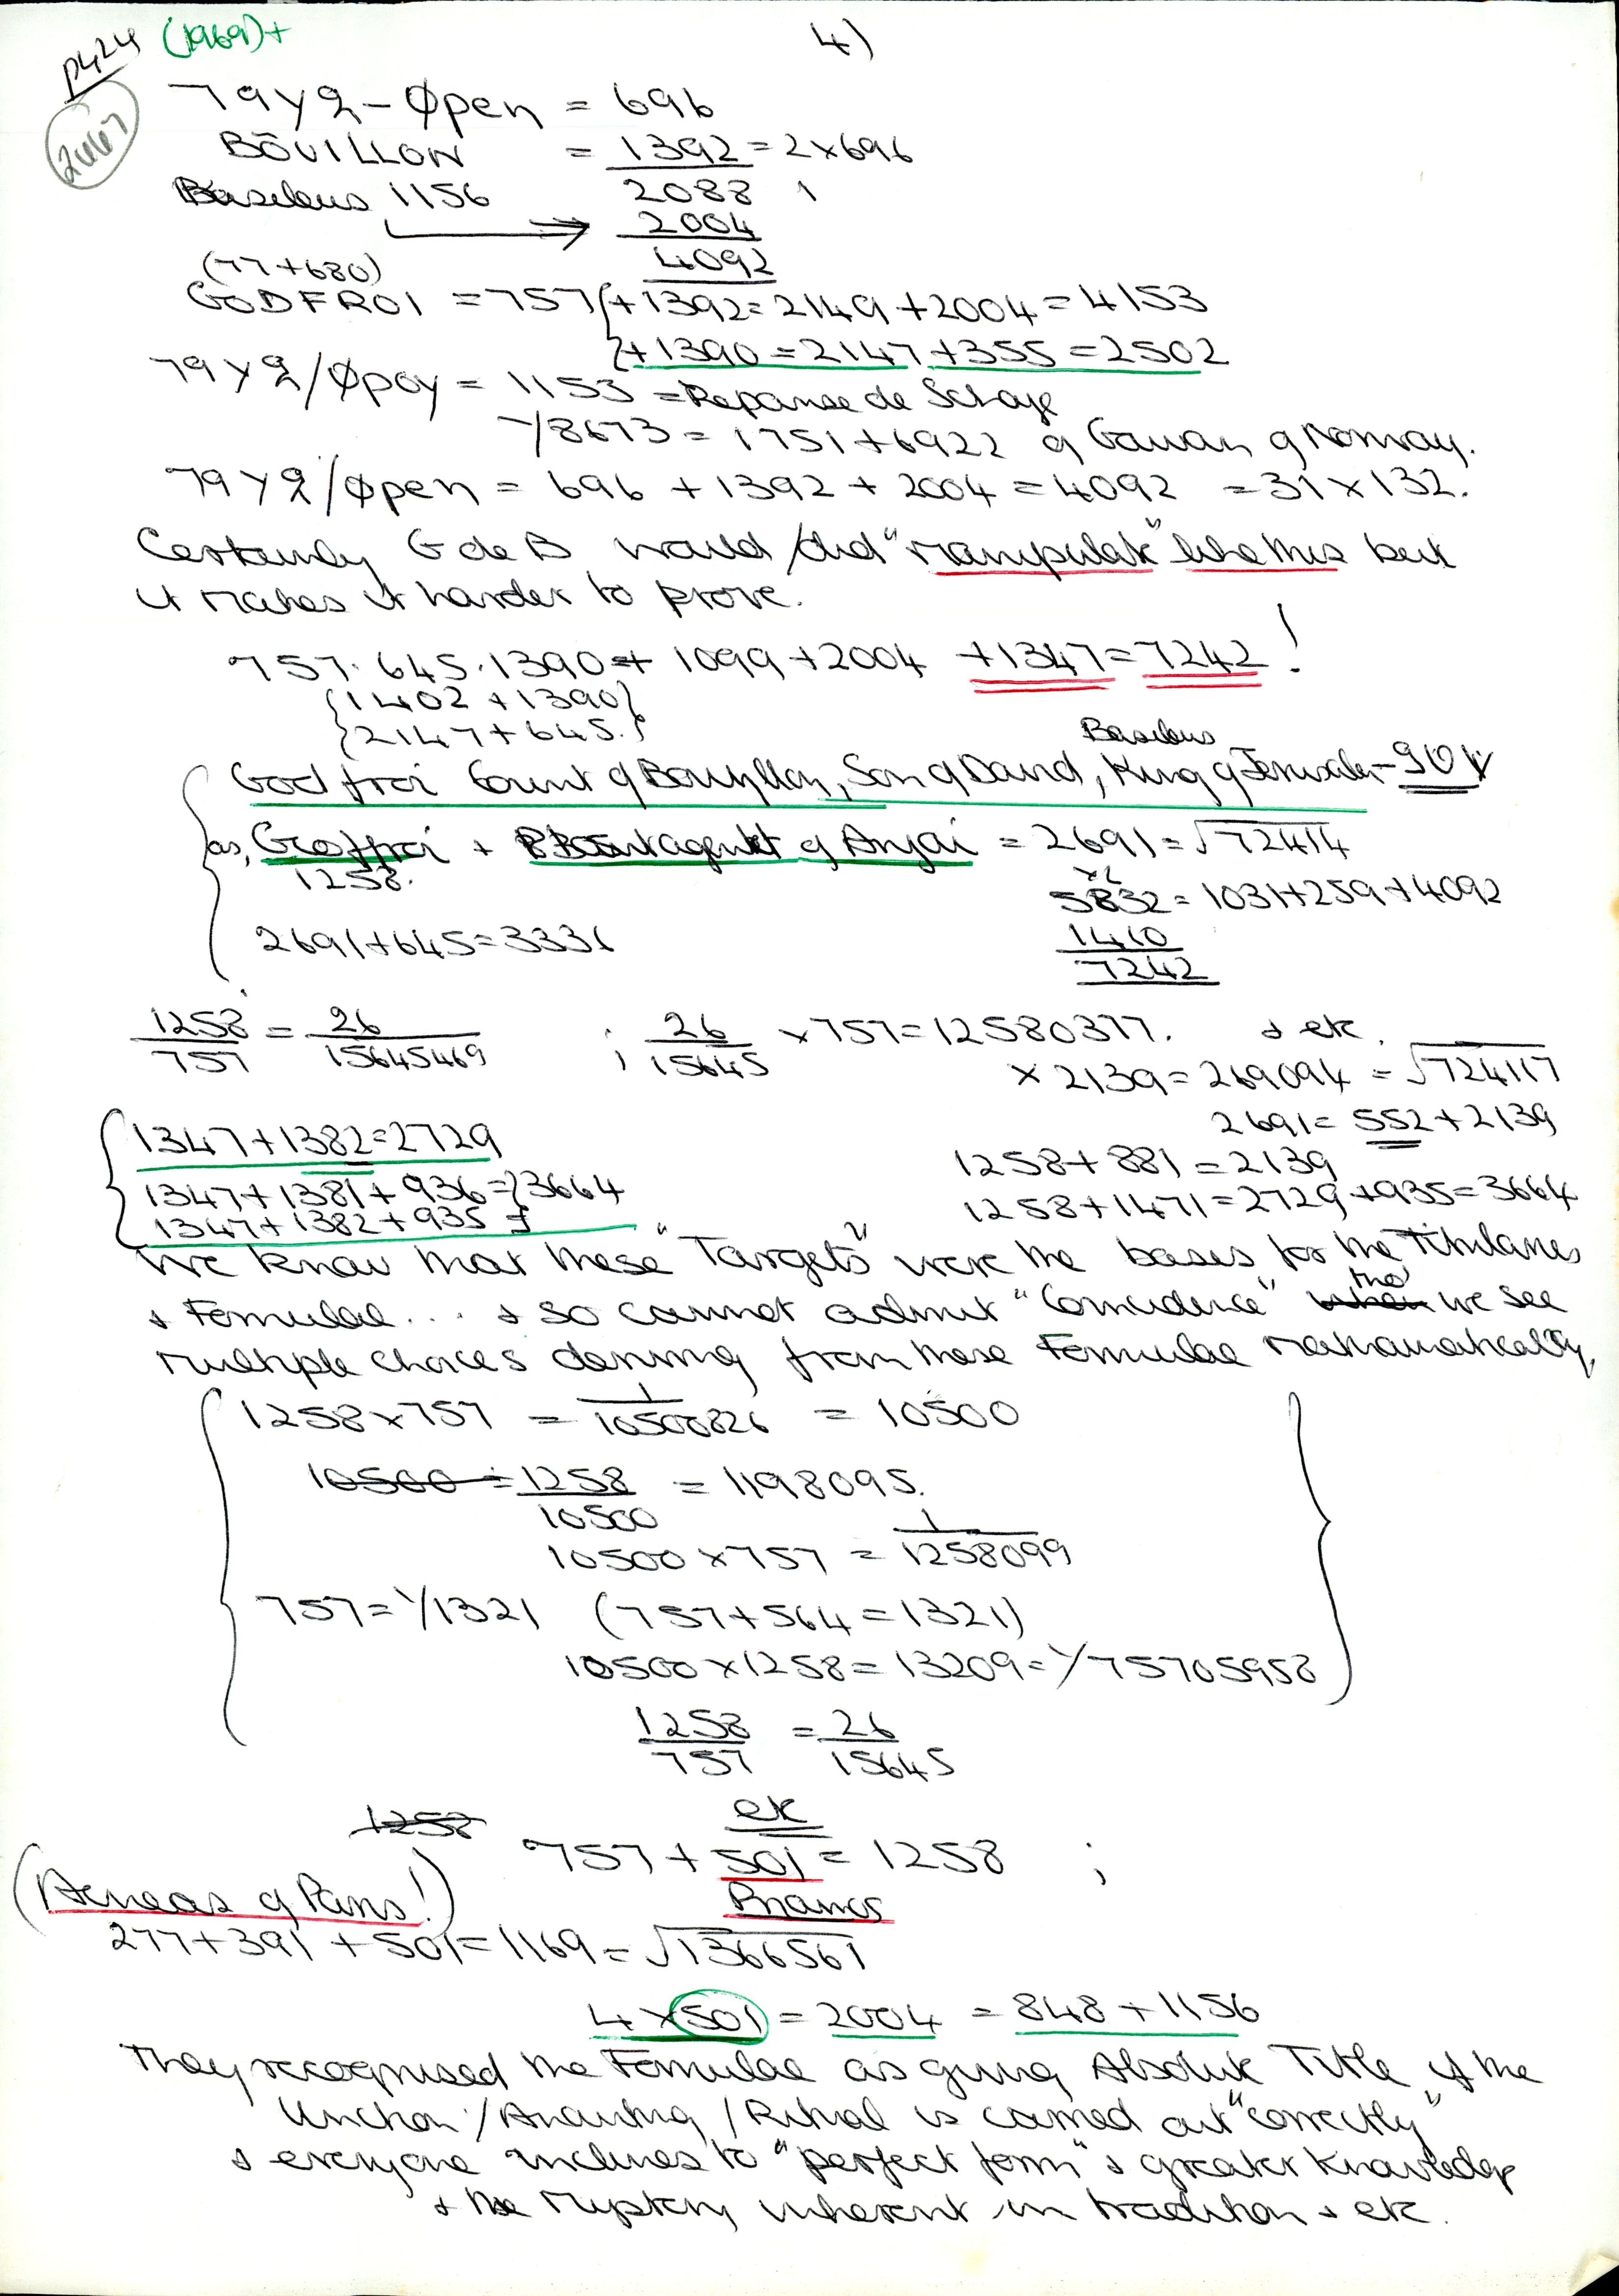 P424 (1969)+ 4)
2667
79y2 - Øpen = 696
BŌUILLON = 1392 = 2x696
Basileus 1156 2088 1
→ 2004
4092
(77+680)
GODFROI = 757 {+1392 = 2149 + 2004 = 4153
{+1390 = 2147 + 355 = 2502
79y2/Øpoy = 1153 = Repanse de Schoye
1/8673 = 1751 + 6922 of Gawan of Norway.
79y2/Øpen = 696 + 1392 + 2004 = 4092 = 31 x 132.
Certainly G de B would/did "manipulate" like this but
it makes it harder to prove.
757. 645. 1390 + 1099 + 2004 + 1347 = 7242!
{1402 + 1390}
{2147 + 645.}
Basileus
Godfroi Count of Bouyllon, Son of David, King of Jerusalem - 90
as, Geoffroi + Plantagenet of Anjou = 2691 = √72414
1258. x2
5832 = 1031 + 259 + 4092
2691 + 645 = 3336 1410
7242
1258/757 = 26/15645469 ; 26/15645 x 757 = 12580377. & etc.
x 2139 = 269094 = √724117
2691 = 552 + 2139
1347 + 1382 = 2729 1258 + 881 = 2139
1347 + 1381 + 936 = } 3664 1258 + 1471 = 2729 + 935 = 3664
1347 + 1382 + 935 =
We know that these "Targets" were the bases for the Titularies
& Formulae... & so cannot admit "Coincidence" when tho' we see
multiple choices deriving from these Formulae mathematically,
1258 x 757 = 1/10500826 = 10500
10500 = 1258/10500 = 1198095.
10500 x 757 = 1/1258099
757 = 1/1321 (757 + 564 = 1321)
10500 x 1258 = 13209 = 1/75705958
1258/757 = 26/15645
etc
1258 757 + 501 = 1258 ;
(Aeneas of Paris!) Priamos
277 + 391 + 501 = 1169 = √1366561
4 x 501 = 2004 = 848 + 1156
They recognised the Formulae as giving Absolute Title if the
Unction/Anointing/Ritual is carried out "correctly"
& everyone inclines to "perfect form" & greater knowledge
& the mystery inherent in tradition & etc.